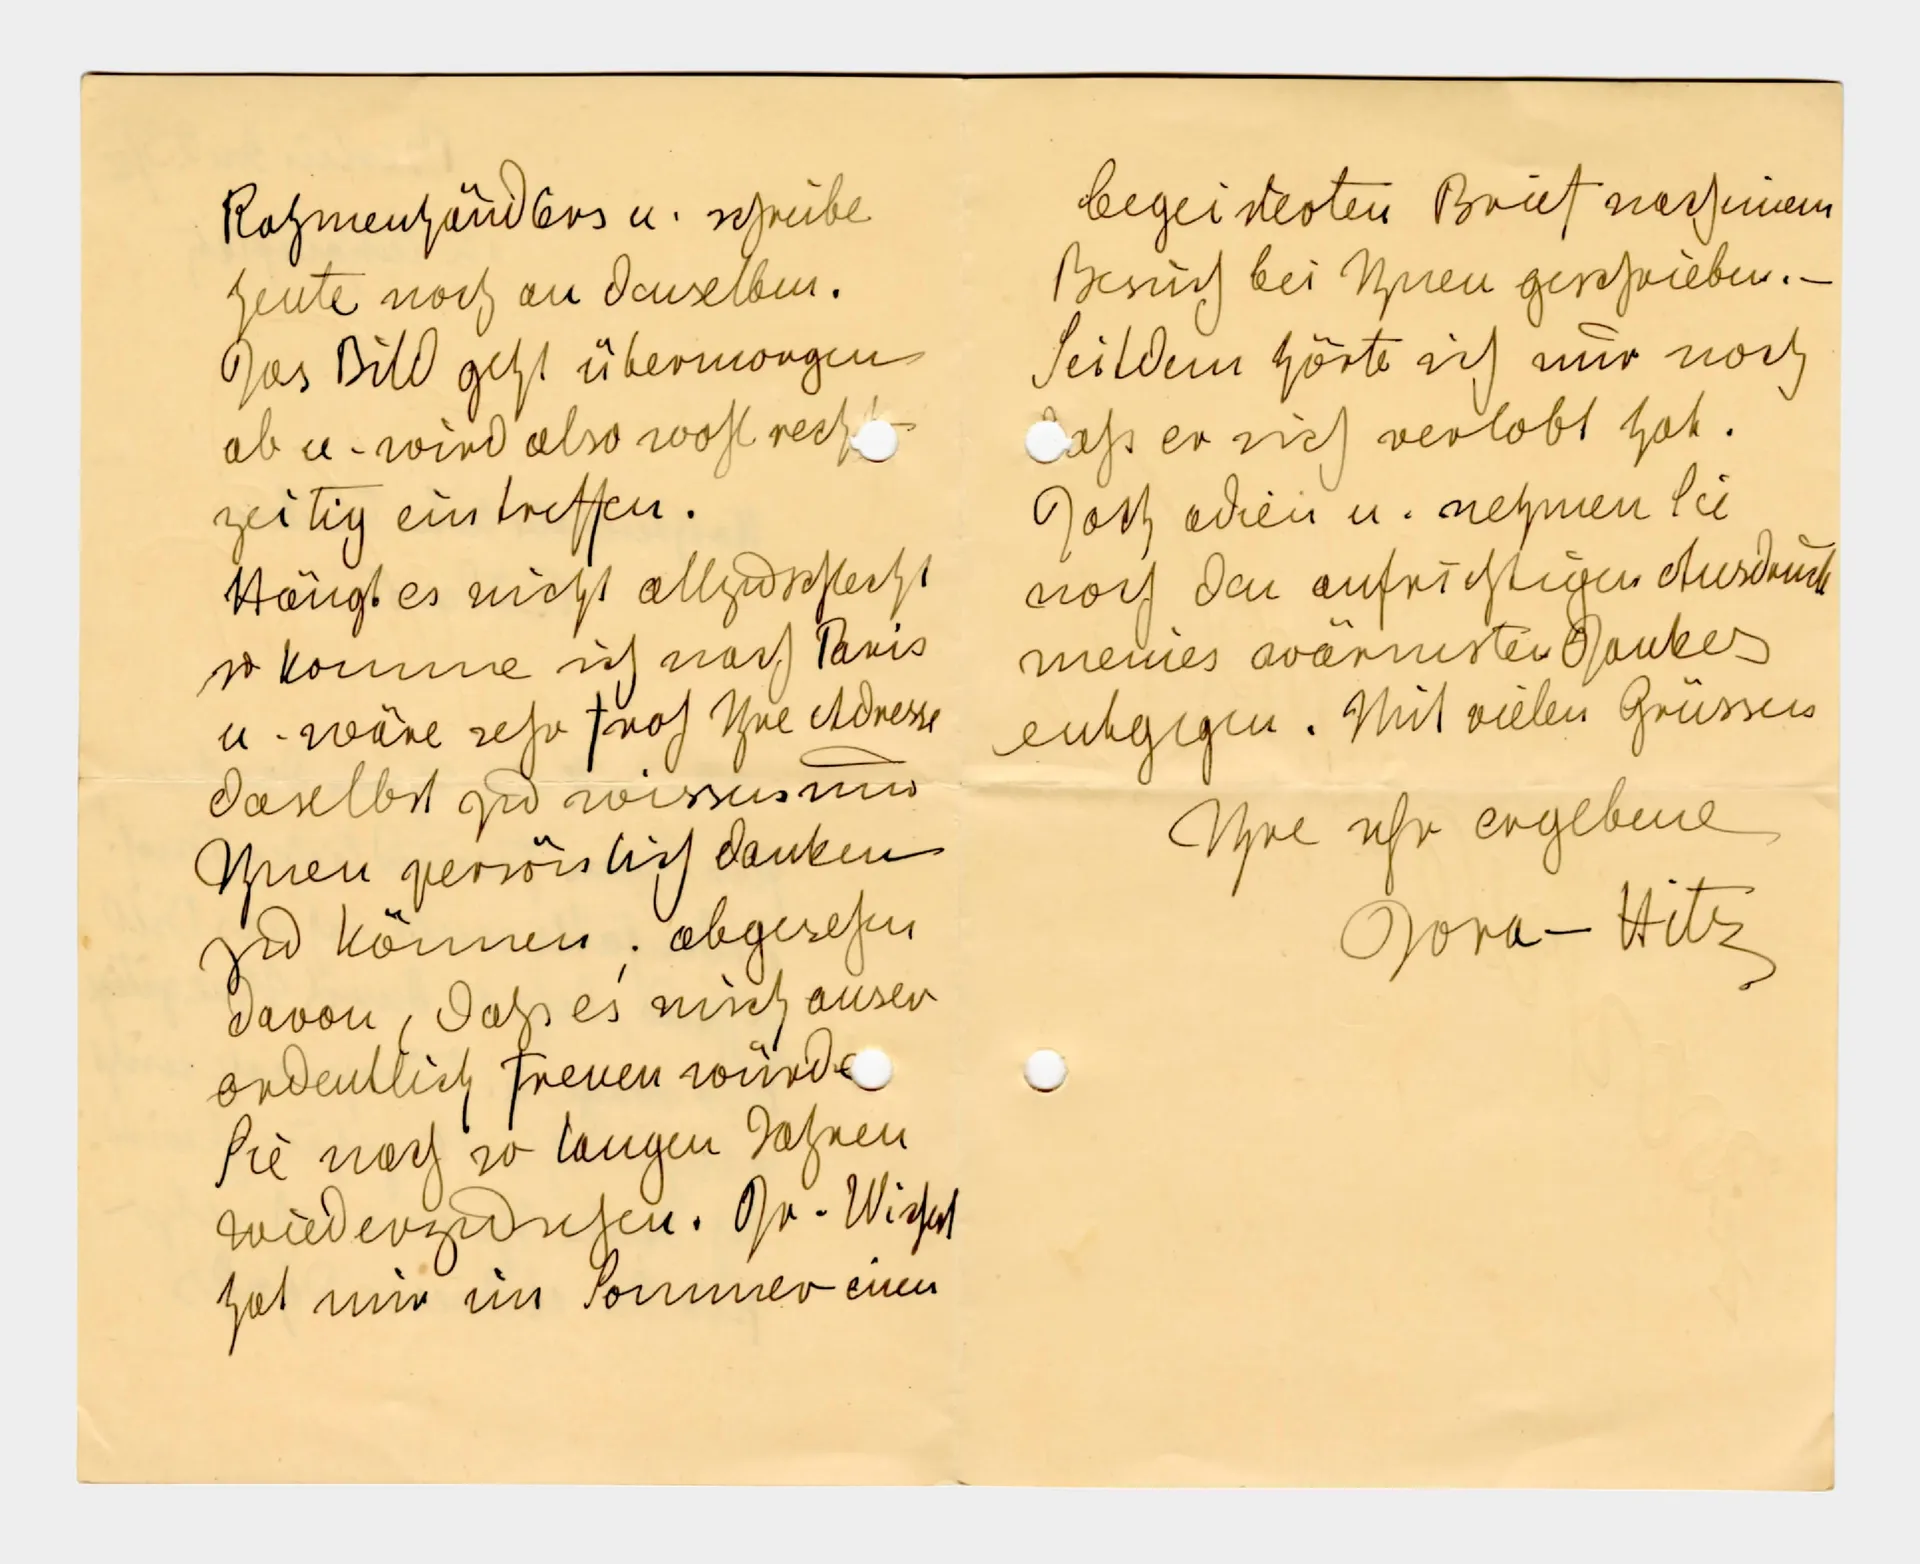 Rahmenhändlers u. schreibe
heute noch an denselben.
Das Bild geht übermorgen
ab u. wird also wohl recht-
zeitig eintreffen.
Hängt es nicht allzuschlecht
so komme ich nach Paris
u. wäre sehr froh Ihre Adresse
daselbst zu wissen um
Ihnen persönlich danken
zu können; abgesehen
davon, dahs es mich auser
ordentlich freuen würde
Sie nach so langen Jahren
wiederzusehen. Dr.
hat mir im Sommer einen
begeisterten Brief nach einem
Besuch bei Ihnen geschrieben. –
Seitdem hörte ich nur noch
dahs er sich verlobt hat.
Doch adieu u. nehmen Sie
noch den aufrichtigen Ausdruck
meines wärmsten Dankes
entgegen. Mit vielen Grüssen
Ihre sehr ergebene
Dora – Hitz